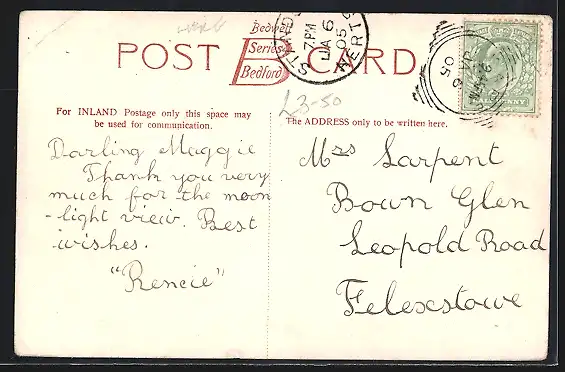 POST CARD
Bedwell
Series
Bedford
7 PM
JA 6
05
£3-50
For INLAND Postage only this space may
be used for communication.
The ADDRESS only to be written here.
Darling Maggie
Thank you very
much for the moon
-light view. Best
wishes.
"Rencie"
Mrs Sarpent
Bown Glen
Leopold Road
Felexstowe